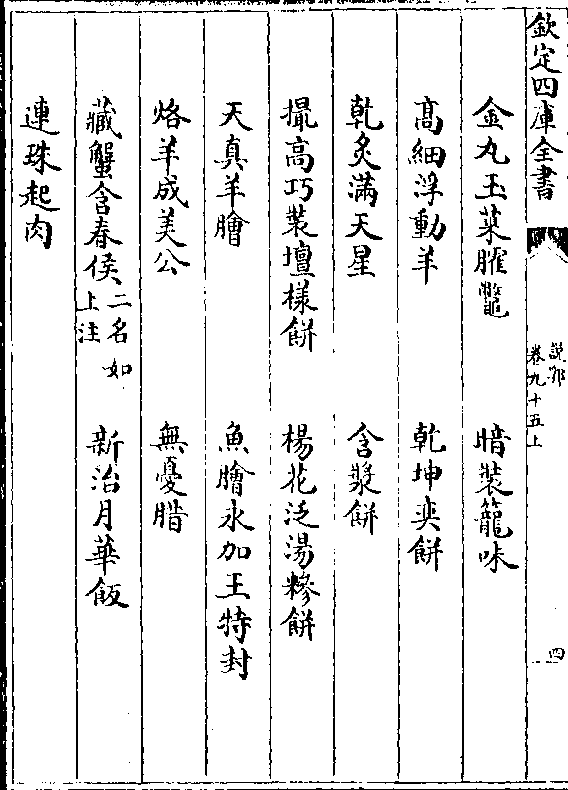 欽定四庫全書
說郛
卷九十五上
四
金丸玉菜臛鼈 暗裝籠味
髙細浮動羊 乾坤奕餅
乾炙滿天星 含漿餅
撮高巧裝壇樣餅 楊花泛湯糝餅
天真羊膾 魚膾永加王特封
烙羊成美公 無憂腊
藏蟹含春侯二名如上注 新治月華飯
連珠起肉